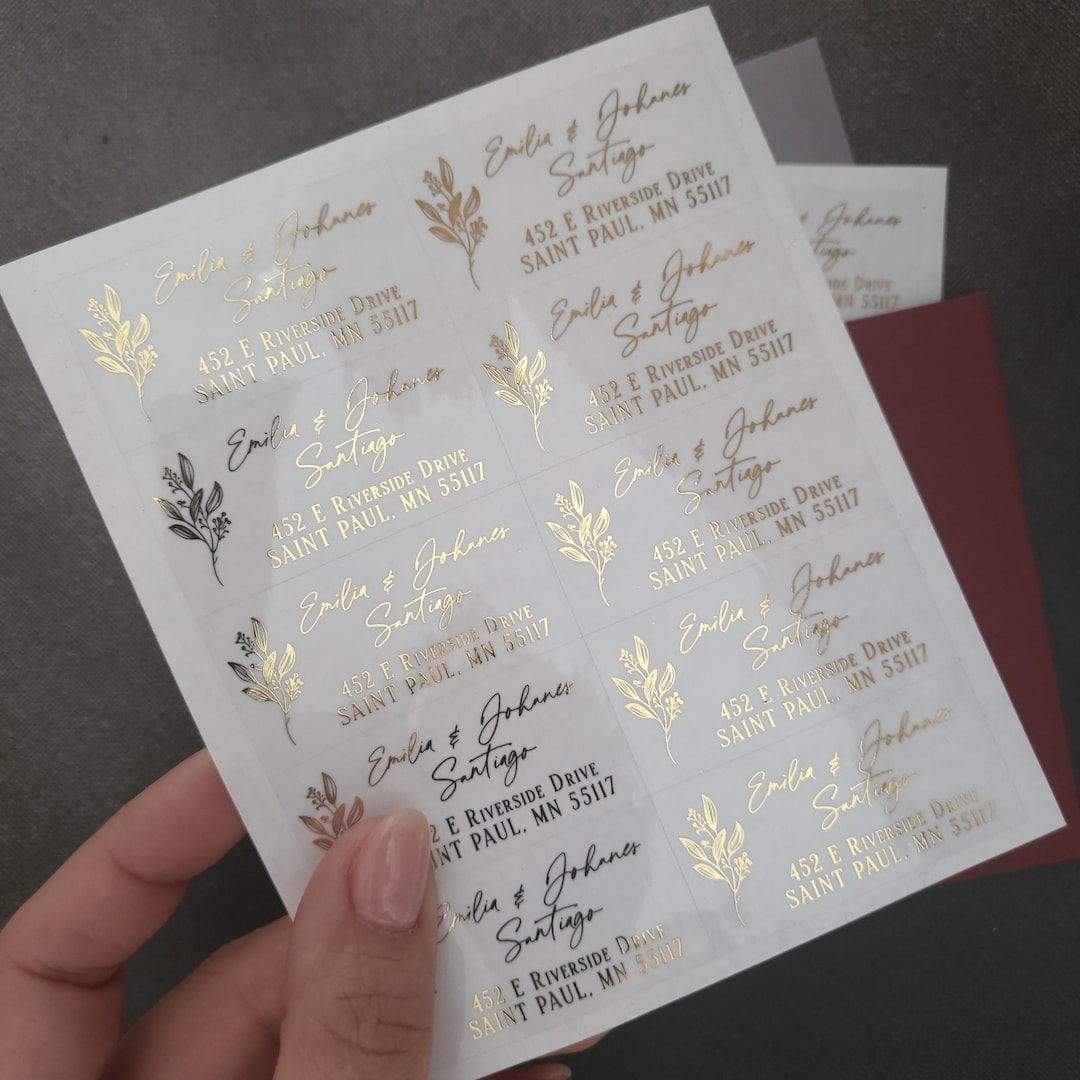 Emilia & Johanes
Santiago
452 E Riverside Drive
SAINT PAUL, MN 55117
Emilia & Johanes
Santiago
452 E Riverside Drive
SAINT PAUL, MN 55117
Emilia & Johanes
Santiago
452 E Riverside Drive
SAINT PAUL, MN 55117
Emilia & Johanes
Santiago
452 E Riverside Drive
SAINT PAUL, MN 55117
Emilia & Johanes
Santiago
452 E Riverside Drive
SAINT PAUL, MN 55117
Emilia & Johanes
Santiago
452 E Riverside Drive
SAINT PAUL, MN 55117
Emilia & Johanes
Santiago
452 E Riverside Drive
SAINT PAUL, MN 55117
Emilia & Johanes
Santiago
E Riverside Drive
PAUL, MN 55117
Emilia & Johanes
Santiago
452 E Riverside Drive
SAINT PAUL, MN 55117
Emilia & Johanes
Santiago
452 E Riverside Drive
SAINT PAUL, MN 55117
& Johanes
Drive
MN 55117